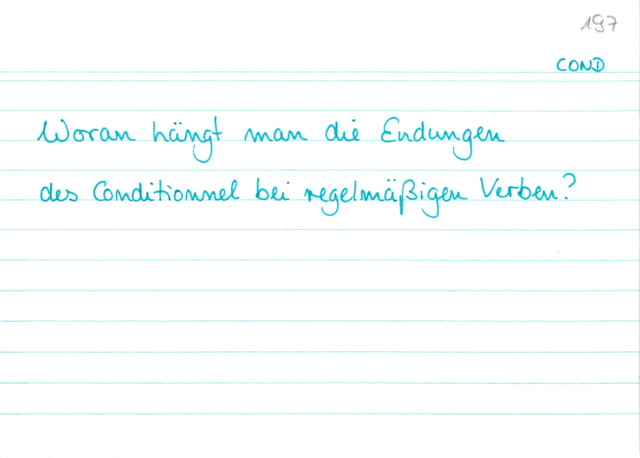 197
COND
Woran hängt man die Endungen
des Conditionnel bei regelmäßigen Verben?